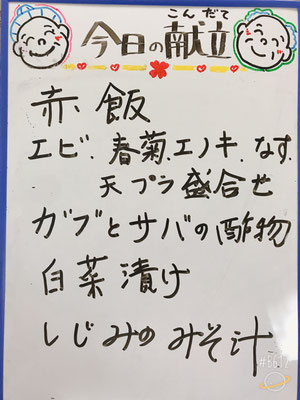 こんだて
今日の献立
赤飯
エビ.春菊.エノキ.なす.
天プラ盛合せ
ガブとサバの酢物
白菜漬け
しじみのみそ汁